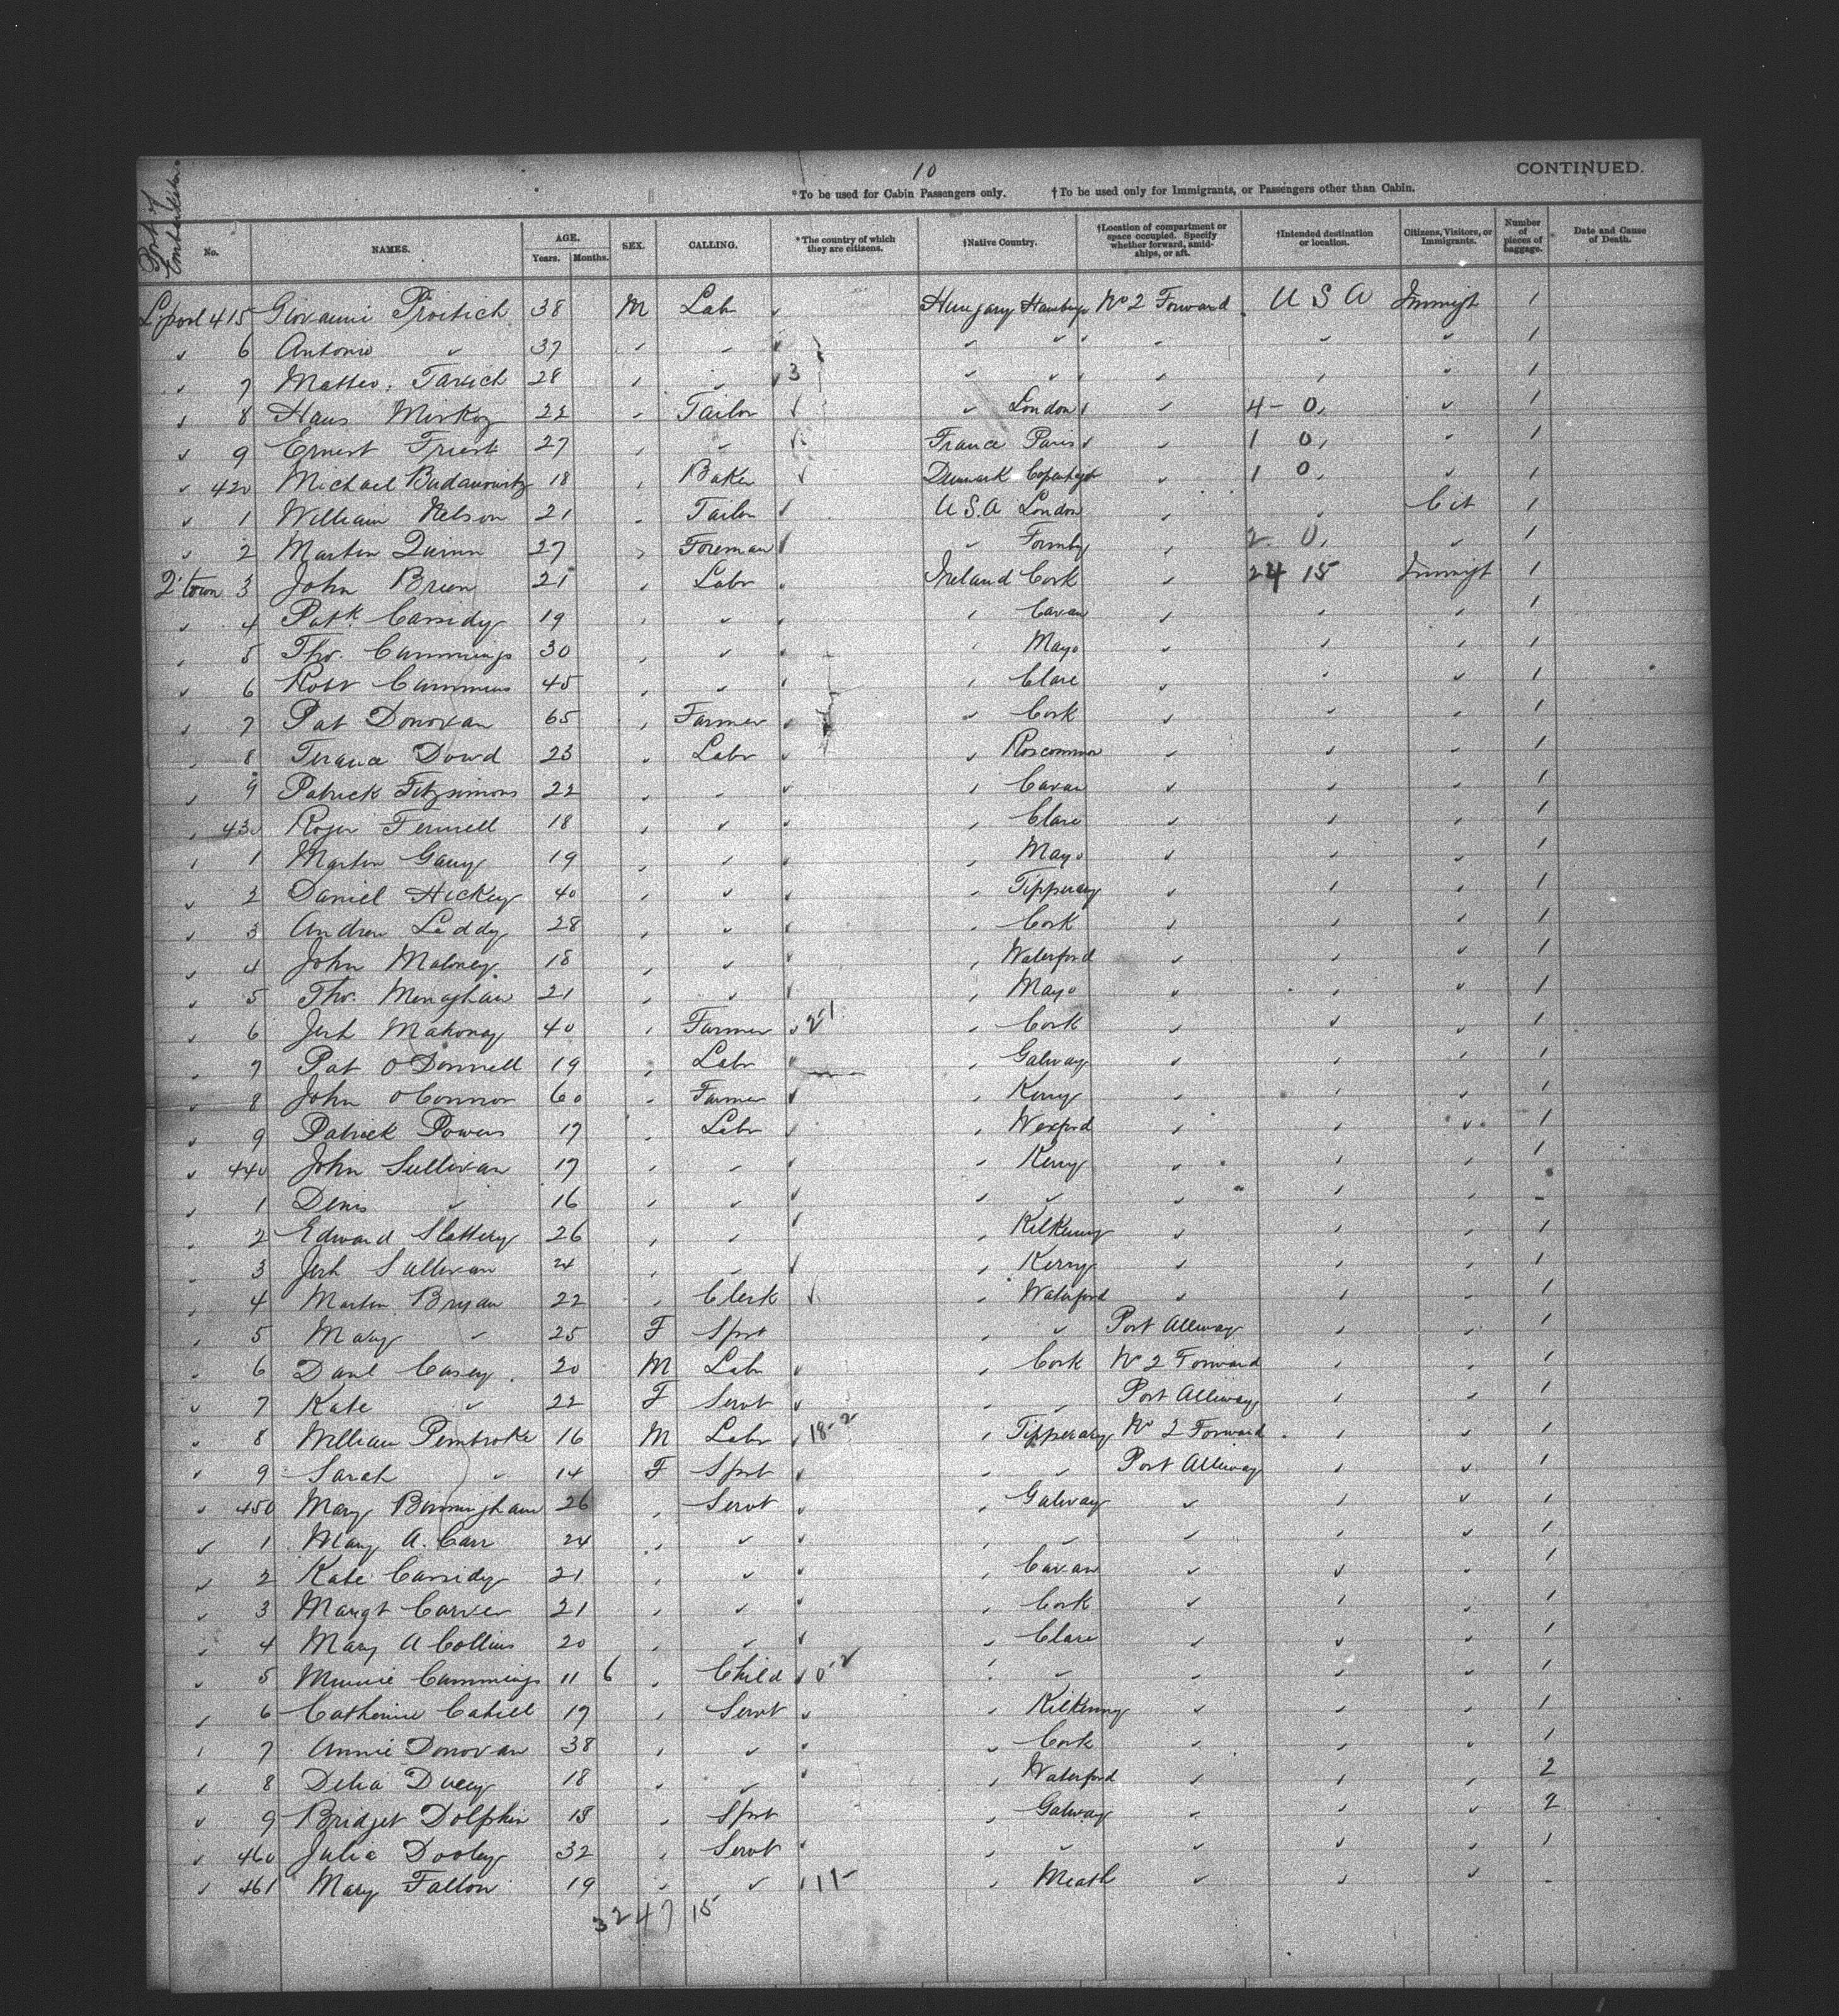 10
CONTINUED.
*To be used for Cabin Passengers only. †To be used only for Immigrants, or Passengers other than Cabin.
Port of Embarkation No. NAMES. AGE. Years. Months. SEX. CALLING. *The country of which they are citizens. †Native Country. †Location of compartment or space occupied. Specify whether forward, amidships, or aft. †Intended destination or location. Citizens, Visitors, or Immigrants. Number of pieces of baggage. Date and Cause of Death.
L'pool 415 Giovanni 38 M Lab Hungary Nº 2 Forward USA Immigt 1
6 Antonio " 37 " " " " " " " 1
7 Matteo 28 " " 3 " " " " " 1
8 Hans 22 " Tailor " London " 4 - 0, " 1
9 Ernest 27 " " France Paris " 1 0, " 1
420 Michael 18 " Baker Denmark " 1 0, " 1
1 William Nelson 21 " Tailor USA London " " Cit 1
2 Martin Quinn 27 " Foreman " Formby " 2 0, " 1
Q'town 3 John Brien 21 " Labr Ireland Cork " 24 15 Immigt 1
4 Patk Cassidy 19 " " " Cavan " " " 1
5 Thos. Cummings 30 " " " Mayo " " " 1
6 Robt Cummins 45 " " " Clare " " " 1
7 Pat Donovan 65 " Farmer " Cork " " " 1
8 Terance Dowd 23 " Labr " Roscommon " " " 1
9 Patrick Fitzsimons 22 " " " Cavan " " " 1
430 Roger Fennell 18 " " " Clare " " " 1
1 Martin 19 " " " Mayo " " " 1
2 Daniel Hickey 40 " " " Tipperary " " " 1
3 Andrew Leddy 28 " " " Cork " " " 1
4 John Maloney 18 " " " Waterford " " " 1
5 Thos. Monaghan 21 " " " Mayo " " " 1
6 Jerh Mahoney 40 " Farmer " Cork " " " 1
7 Pat O'Donnell 19 " Labr " Galway " " " 1
8 John O'Connor 60 " Farmer " Kerry " " " 1
9 Patrick Powers 17 " Labr " Wexford " " " 1
440 John Sullivan 17 " " " Kerry " " " 1
1 Denis " 16 " " " " " " " -
2 Edward Slattery 26 " " " Kilkenny " " " 1
3 Jerh Sullivan 24 " " " Kerry " " " 1
4 Martin Bryan 22 " Clerk " Waterford " " " 1
5 Mary " 25 F Spst " " Port Alleway " " 1
6 Danl Casey 20 M Labr " Cork Nº 2 Forward " " 1
7 Kate " 22 F Servt " " Port Alleway " " 1
8 William Pembroke 16 M Labr 18-2 " Tipperary Nº 2 Forward " " 1
9 Sarah " 14 F Spst " " Port Alleway " " 1
450 Mary Birmingham 26 " Servt " Galway " " " 1
1 Mary A. Carr 24 " " " " " " " 1
2 Kate Cassidy 21 " " " Cavan " " " 1
3 Margt Carver 21 " " " Cork " " " 1
4 Mary A Collins 20 " " " Clare " " " 1
5 Minnie Cummings 11 6 " Child 0-2 " " " " " 1
6 Catherine Cahill 17 " Servt " Kilkenny " " " 1
7 Annie Donovan 38 " " " Cork " " " 1
8 Delia Ducey 18 " " " Waterford " " " 2
9 Bridget Dolphin 18 " Spst " Galway " " " 2
460 Julia Dooley 32 " Servt " " " " " 1
461 Mary Fallon 19 " " 11- " Meath " " " -
3247 15